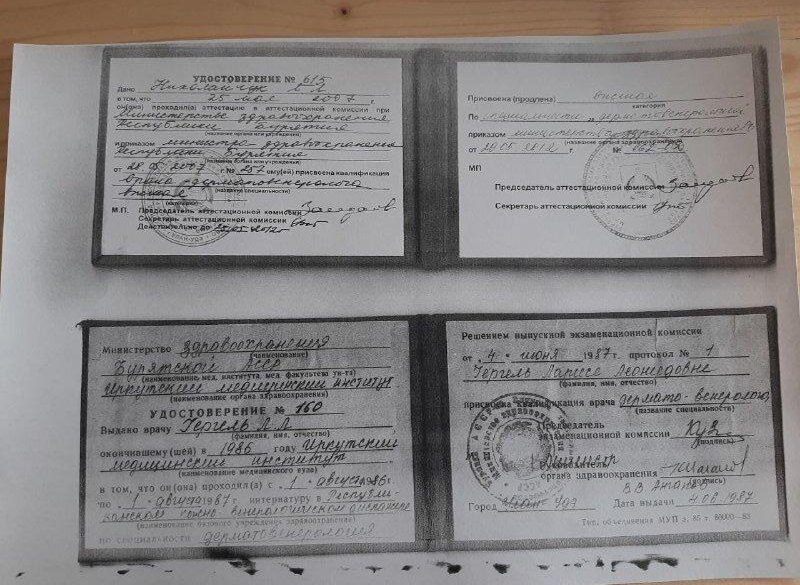 УДОСТОВЕРЕНИЕ № 615
Дано Николайчук Л Л
в том, что 25 мая 2007 г.
он(она) проходил(а) аттестацию в аттестационной комиссии при
Министерстве здравоохранения
Республики Бурятия
(название органа или учреждения)
и приказом министра здравоохранения
Республики Бурятия
(название органа или учреждения)
от 28 05 2007 г. № 257 ему(ей) присвоена квалификация
врача дерматовенеролога
(название специальности)
(категория)
М.П. Председатель аттестационной комиссии
Секретарь аттестационной комиссии
Действительно до 2012г
Присвоена (продлена) высшая
категория
По специальности "дерматовенерология"
приказом министерства здравоохранения РБ
(название органа здравоохранения)
от 29 05 2012 г. №
МП
Председатель аттестационной комиссии
Секретарь аттестационной комиссии
Министерство здравоохранения
(наименование)
Бурятской АССР
(наименование мед. института, мед. факультета ун-та)
Иркутский медицинский институт
(наименование органа здравоохранения)
УДОСТОВЕРЕНИЕ № 160
Выдано врачу Гергель Л Л
(фамилия, имя, отчество)
окончившему(шей) в 1986 году Иркутский
медицинский институт
(наименование медицинского вуза)
в том, что он(она) проходил(а) с 1 августа 1986г.
по 1 августа 1987 г. интернатуру в Республи-
канском кожно-венерологическом диспансере
(наименование базового учреждения здравоохранения)
по специальности дерматовенерология
Решением выпускной экзаменационной комиссии
от 4 июня 1987 г. протокол № 1
Гергель Ларисе Леонидовне
(фамилия, имя, отчество)
присвоена квалификация врача дермато-венеролога
(название специальности)
Председатель
экзаменационной комиссии
(подпись)
Министр
Руководитель
органа здравоохранения
(подпись)
Город Улан-Удэ Дата выдачи 4.08.1987
Тип. объединения МУП з. 85 т. 55000—83